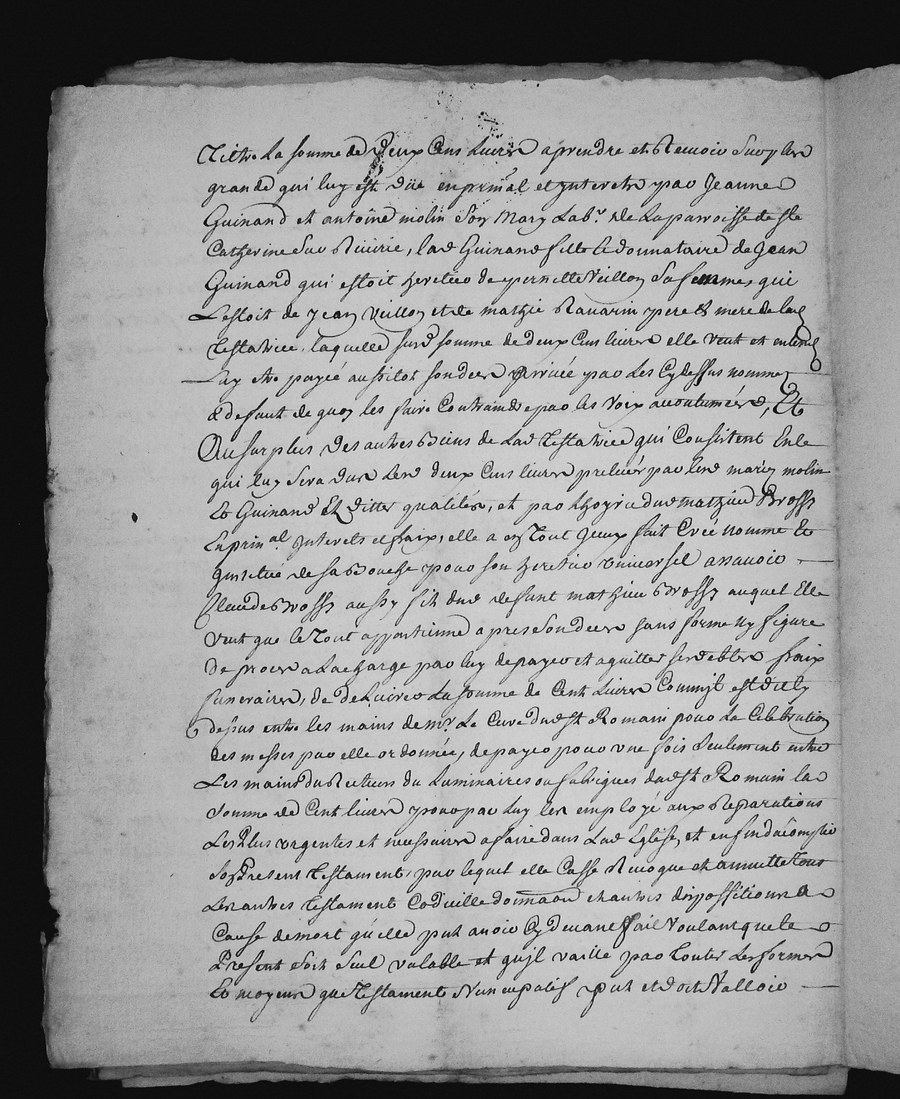 Titre La somme de Deux Cens Livres a prendre et Recevoir Sur plus
grande qui luy est düe en prin.al et Interets par Jeanne
Guinand et antoine molin Son Mary Lab.r de La parroisse de ste
Catherine Sur Riviere, lad Guinand fille et donnataire de Jean
Guinand qui estoit heritier de pernette Veillon Sa femme, qui
Lestoit de Jean Veillon et de mathie Ravarin pere & mere de lad
Testatrice, laquelle susd somme de deux Cens livres elle veut et entend
Luy être payée aussitot son deces arrivée par Les Cydessus nommes
& defaut de quoy les faire Contraindre par les voix accoutumées, Et
Au surplus des autres Biens de Lad Testatrice qui Consistent En ce
qui luy Sera dure Lesd deux Cens livres preleves par lesd mariés molin
Et Guinand Et dittes qualités, et par l'hoyrie dud mathieu Bross
En prin.al Interets et fraix, elle a en Tout Iceux fait Créé nommé Et
institué de sa Bouche pour son heritier universel assavoir
Claude Bross aussy fils dud defunt mathieu Bross auquel Elle
veut que le Tout appartienne apres son deces sans forme ny figure
de proces a La Charge par luy de payer et aquitter ses debtes fraix
funeraires, de delivrer La somme de Cent Livres Comme il est dit cy
dessus entre les mains de mr. Le Curé dud st Romain pour La Celebration
des messes par elle ordonnées, de payer pour une fois seulement entre
Les mains du Recteurs du Luminaires ou fabriques dud st Romain la
Somme de Cent livres pour par luy les employé aux Reparations
Les Plus urgentes et necessaires a faire dans Lad Eglise, et en fin d'accomplir
Son Present Testament, par lequel elle Casse Revoque et annulle Tous
Les autres Testament Codicille donnaon et autres dispossitions a
Cause de mort qu'elle put avoir Cy devant fait voulant que le
Present Soit Seul valable et qu'jl vaille par Toutes Les formes
Et moyens que Testament Nuncupatif put et doit Valloir